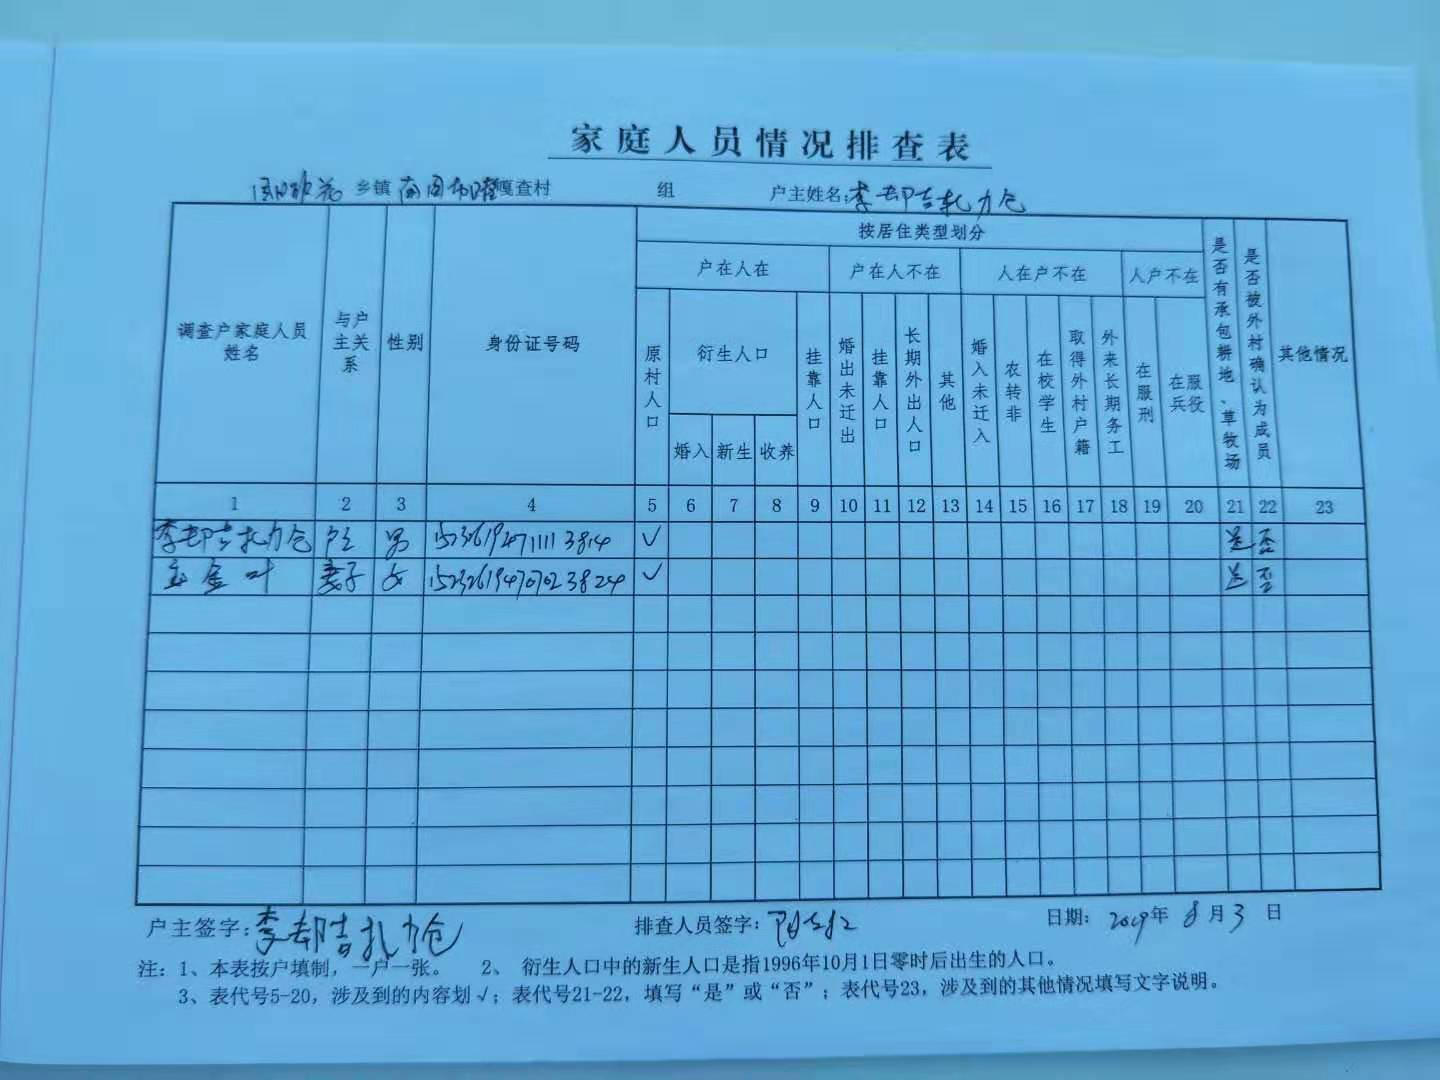 家庭人员情况排查表
乡镇 嘎查村 组 户主姓名:李却吉扎力仓
调查户家庭人员姓名 与户主关系 性别 身份证号码 按居住类型划分 是否有承包耕地、草牧场 是否被外村确认为成员 其他情况
户在人在 户在人不在 人在户不在 人户不在
原村人口 衍生人口 挂靠人口 婚出未迁出 挂靠人口 长期外出人口 其他 婚入未迁入 农转非 在校学生 取得外村户籍 外来长期务工 在服刑 在服兵役
婚入 新生 收养
1 2 3 4 5 6 7 8 9 10 11 12 13 14 15 16 17 18 19 20 21 22 23
李却吉扎力仓 户主 男 √ 是 否
金叶 妻子 女 152326194707023824 √ 是 否
户主签字:李却吉扎力仓 排查人员签字: 日期: 2019年 8月 3 日
注: 1、本表按户填制，一户一张。 2、 衍生人口中的新生人口是指1996年10月1日零时后出生的人口。
3、表代号5-20，涉及到的内容划√；表代号21-22，填写“是”或“否”；表代号23，涉及到的其他情况填写文字说明。